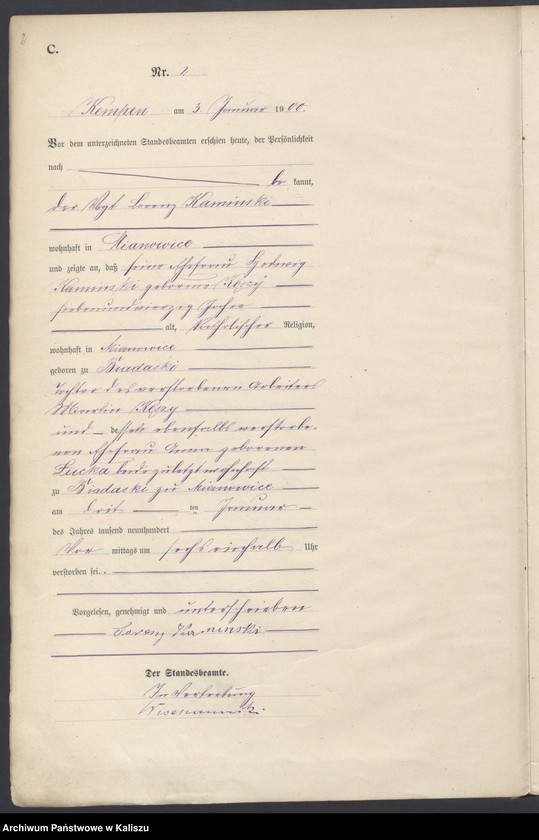 C.
Nr. 2
Kempen am 3 Januar 1900.
Vor dem unterzeichneten Standesbeamten erschien heute, der Persönlichkeit
nach
be kannt,
der Vogt Lorenz Kaminski
wohnhaft in Mianowice
und zeigte an, daß seine Ehefrau Hedwig
Kaminski geborene Kęzy
siebenundvierzig Jahre
alt, katholischer Religion,
wohnhaft in Mianowice
geboren zu Biadaski
Tochter des verstorbenen Arbeiters
Martin Kęzy
und dessen ebenfalls verstorbe-
nen Ehefrau Anna geborenen
Lucka beide zuletzt wohnhaft
zu Biadaski zu Mianowice
am drit ten Januar
des Jahres tausend neunhundert
Vor mittags um sechs einhalb Uhr
verstorben sei.
Vorgelesen, genehmigt und unterschrieben
Lorenz Kaminski
Der Standesbeamte.
In Vertretung
Archiwum Państwowe w Kaliszu